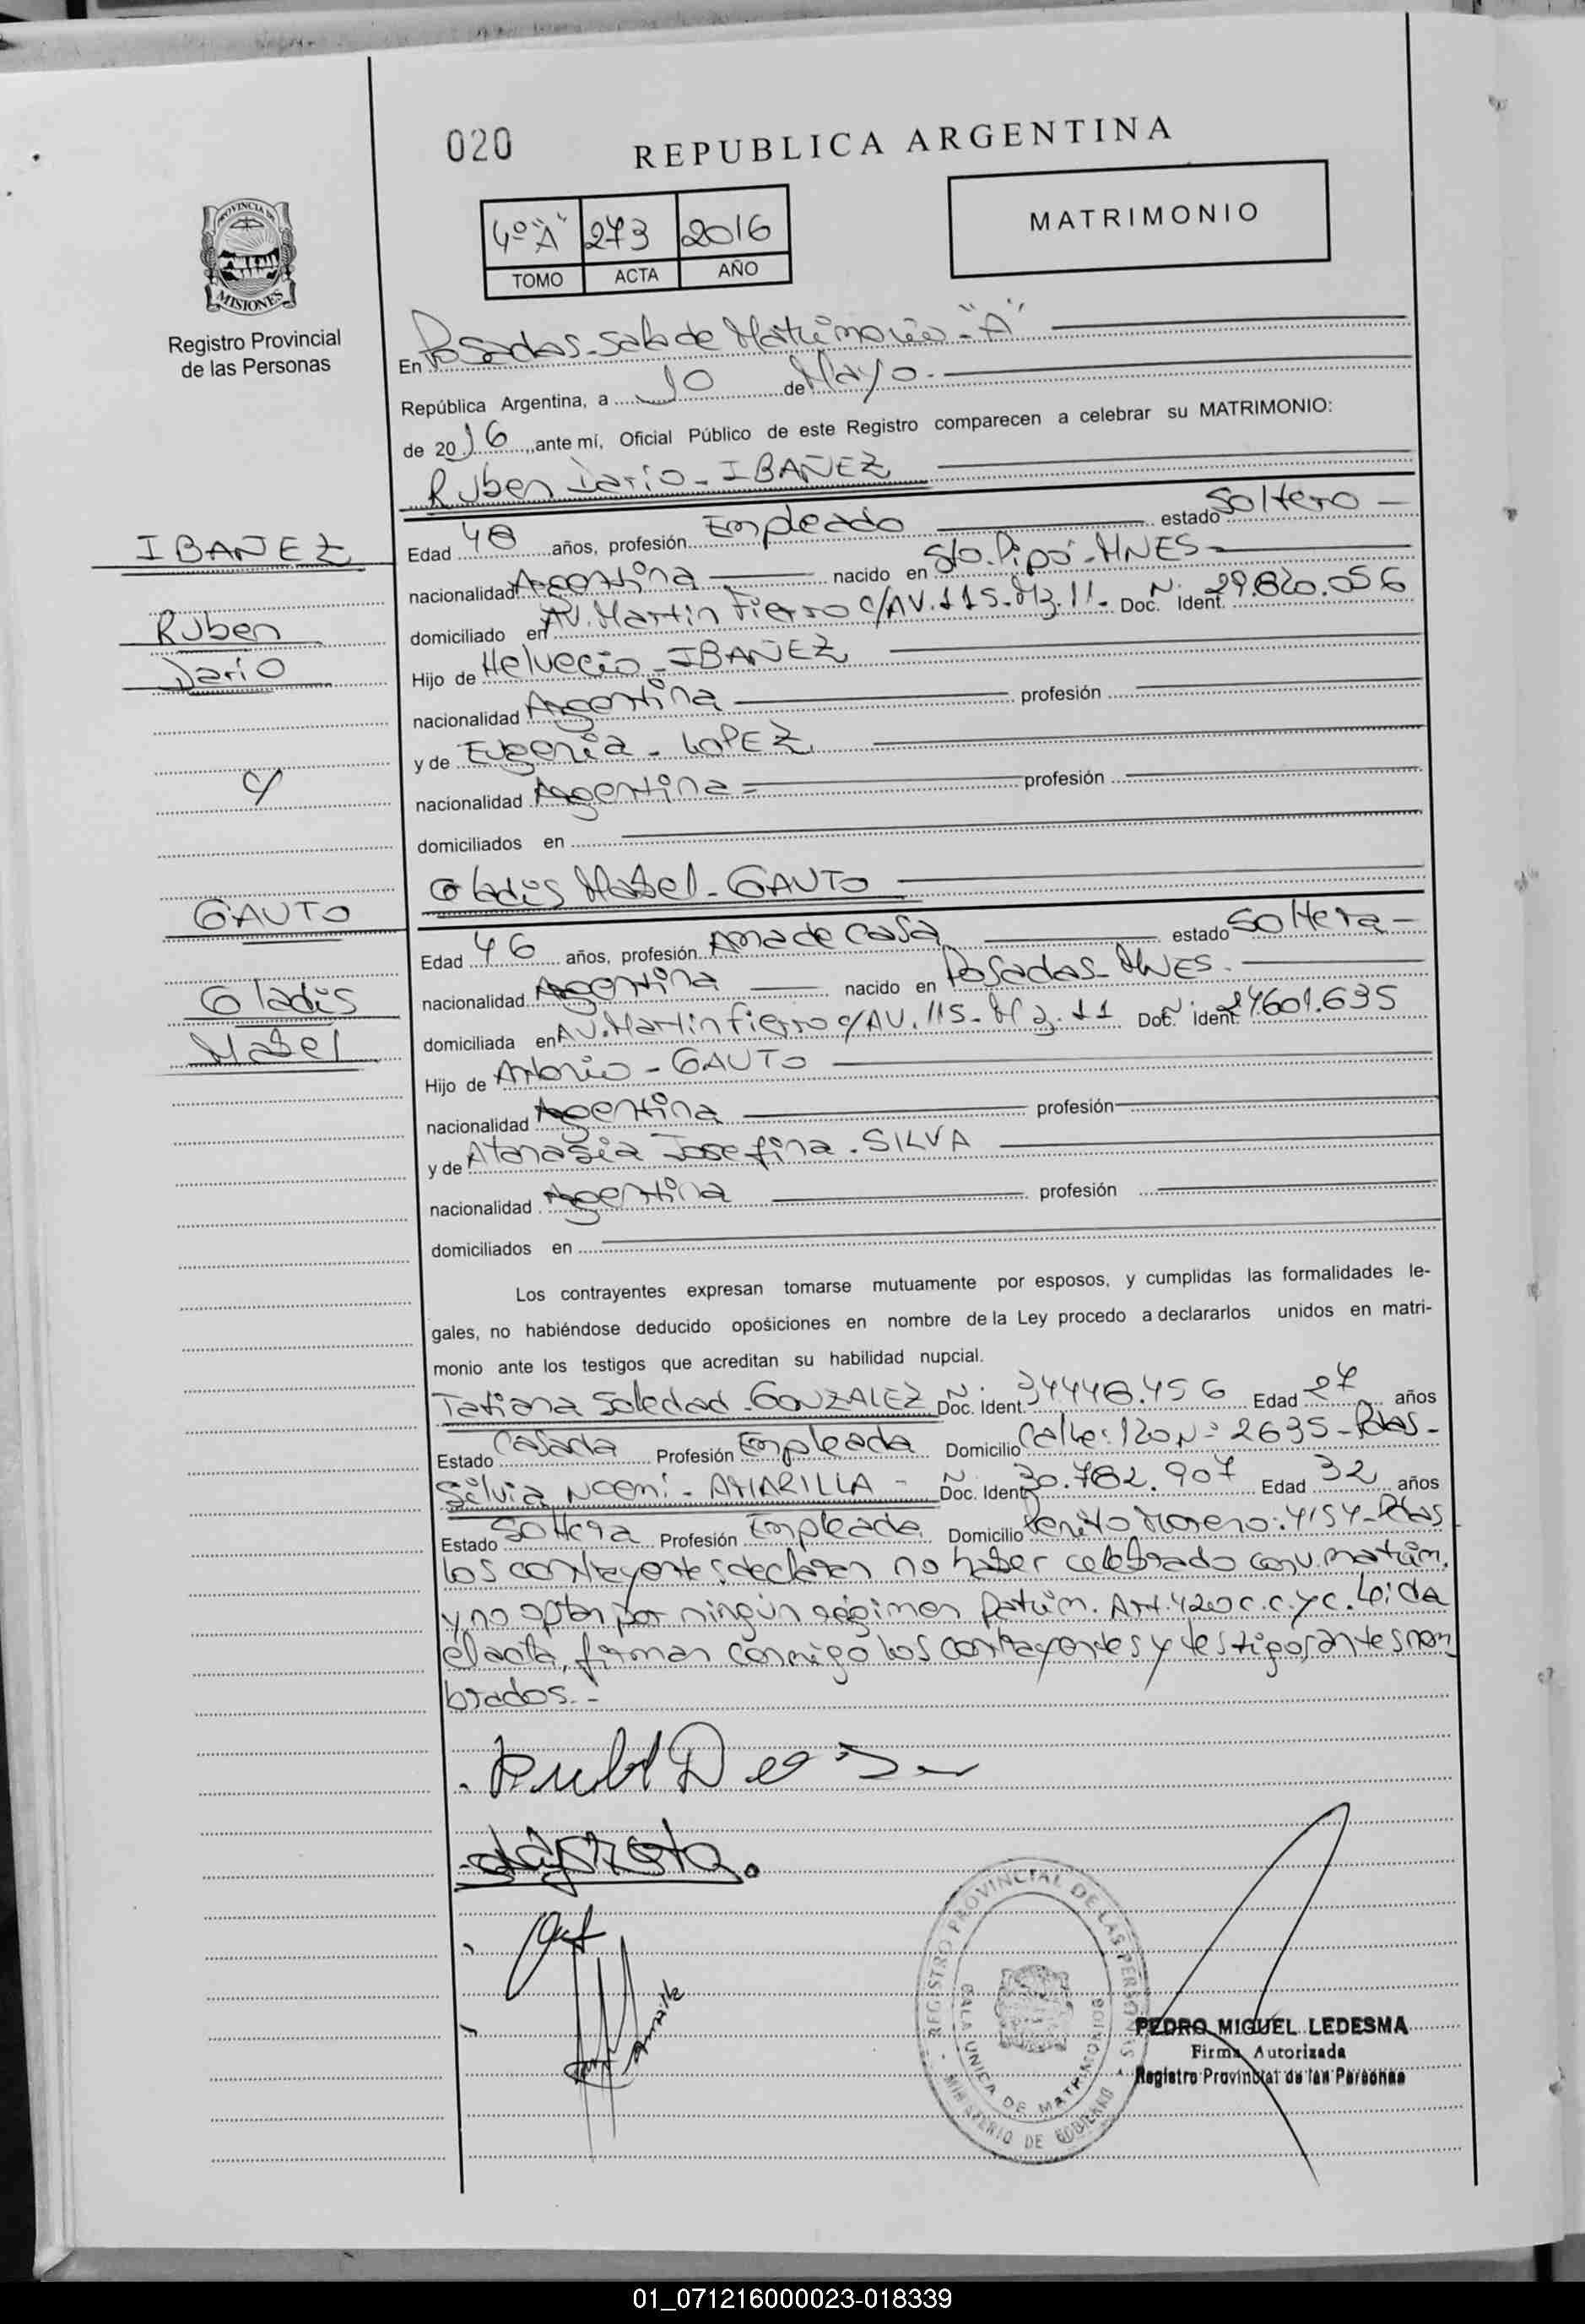 020
REPUBLICA ARGENTINA
4º "A" 273 2016
TOMO ACTA AÑO
MATRIMONIO
PROVINCIA DE
MISIONES
Registro Provincial
de las Personas
En Posadas-Sala de Matrimonio-"A"
República Argentina, a 10 de Mayo.
de 2016, ante mí, Oficial Público de este Registro comparecen a celebrar su MATRIMONIO:
Ruben Dario-IBAÑEZ
IBAÑEZ
Ruben
Dario
c/
GAUTO
Gladis
Mabel
Edad 48 años, profesión Empleado estado Soltero
nacionalidad Argentina nacido en Sto. Pipó-MNES-
domiciliado en AV. Martin Fierro c/AV. 115-Mz. 11- Doc. Nº Ident. 29.820.056
Hijo de Helvecio-IBAÑEZ
nacionalidad Argentina profesión
y de Eugenia-LOPEZ
nacionalidad Argentina profesión
domiciliados en
Gladis Mabel-GAUTO
Edad 46 años, profesión Ama de Casa estado Soltera-
nacionalidad Argentina nacido en Posadas-MNES.
domiciliada en AV. Martin Fierro c/AV. 115-Mz. 11 Doc. Nº Ident. 24601.635
Hijo de Antonio-GAUTO
nacionalidad Argentina profesión
y de Atanasia Josefina-SILVA
nacionalidad Argentina profesión
domiciliados en
Los contrayentes expresan tomarse mutuamente por esposos, y cumplidas las formalidades le-
gales, no habiéndose deducido oposiciones en nombre de la Ley procedo a declararlos unidos en matri-
monio ante los testigos que acreditan su habilidad nupcial.
Tatiana Soledad-GONZALEZ Doc. Nº Ident. 34448.456 Edad 27 años
Estado Casada Profesión Empleada Domicilio Calle: 120 Nº 2635-Pdas-
Silvia Noemi-AMARILLA- Doc. Nº Ident. 30.782.907 Edad 32 años
Estado Soltera Profesión Empleada Domicilio Perito Moreno: 4154-Pdas
Los contrayentes declaran no haber celebrado conv. matrim.
y no optan por ningún régimen Patrim. Art. 420 C.C.yC. Leida
el acta, firman conmigo los contrayentes y testigos antes nom
brados.-
REGISTRO PROVINCIAL DE LAS PERSONAS
SALA UNICA DE MATRIMONIOS
MINISTERIO DE GOBIERNO
PEDRO MIGUEL LEDESMA
Firma Autorizada
Registro Provincial de las Personas
01_071216000023-018339